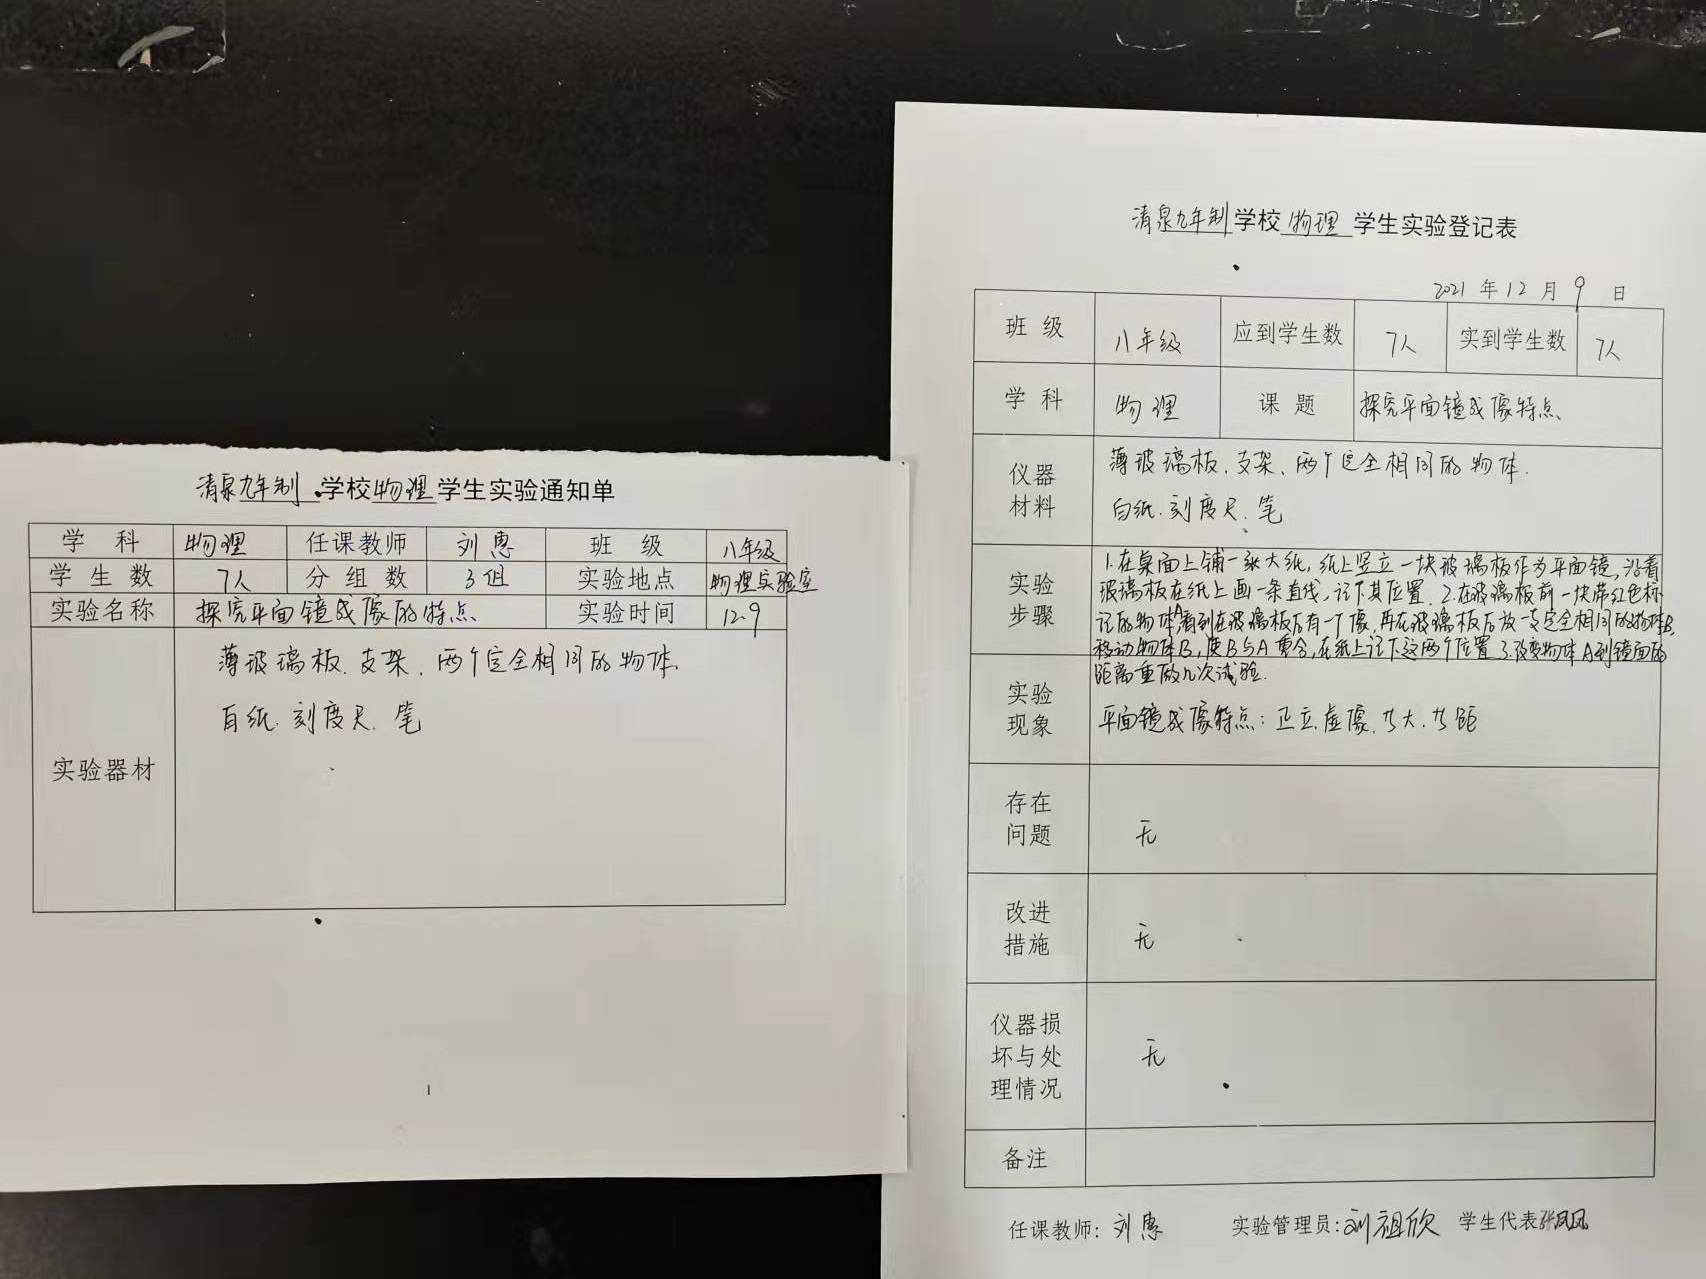 清泉九年制学校物理学生实验通知单
学科 物理 任课教师 刘惠 班级 八年级
学生数 7人 分组数 3组 实验地点 物理实验室
实验名称 探究平面镜成像的特点 实验时间 12.9
实验器材
薄玻璃板、支架、两个完全相同的物体
白纸、刻度尺、笔
清泉九年制学校物理学生实验登记表
2021年12月9日
班级 八年级 应到学生数 7人 实到学生数 7人
学科 物理 课题 探究平面镜成像特点
仪器材料
薄玻璃板、支架、两个完全相同的物体、
白纸、刻度尺、笔
实验步骤
1.在桌面上铺一张大纸,纸上竖立一块玻璃板作为平面镜,沿着
玻璃板在纸上画一条直线,记下其位置.2.在玻璃板前一块带红色标
记的物体A看到在玻璃板后有一个像,再在玻璃板后放一支完全相同的物体B,
移动物体B,使B与A重合,在纸上记下这两个位置3.改变物体A到镜面的
距离重做几次试验.
实验现象
平面镜成像特点:正立、虚像、等大、等距
存在问题
无
改进措施
无
仪器损坏与处理情况
无
备注
任课教师:刘惠 实验管理员:刘祖欣 学生代表张凤凤